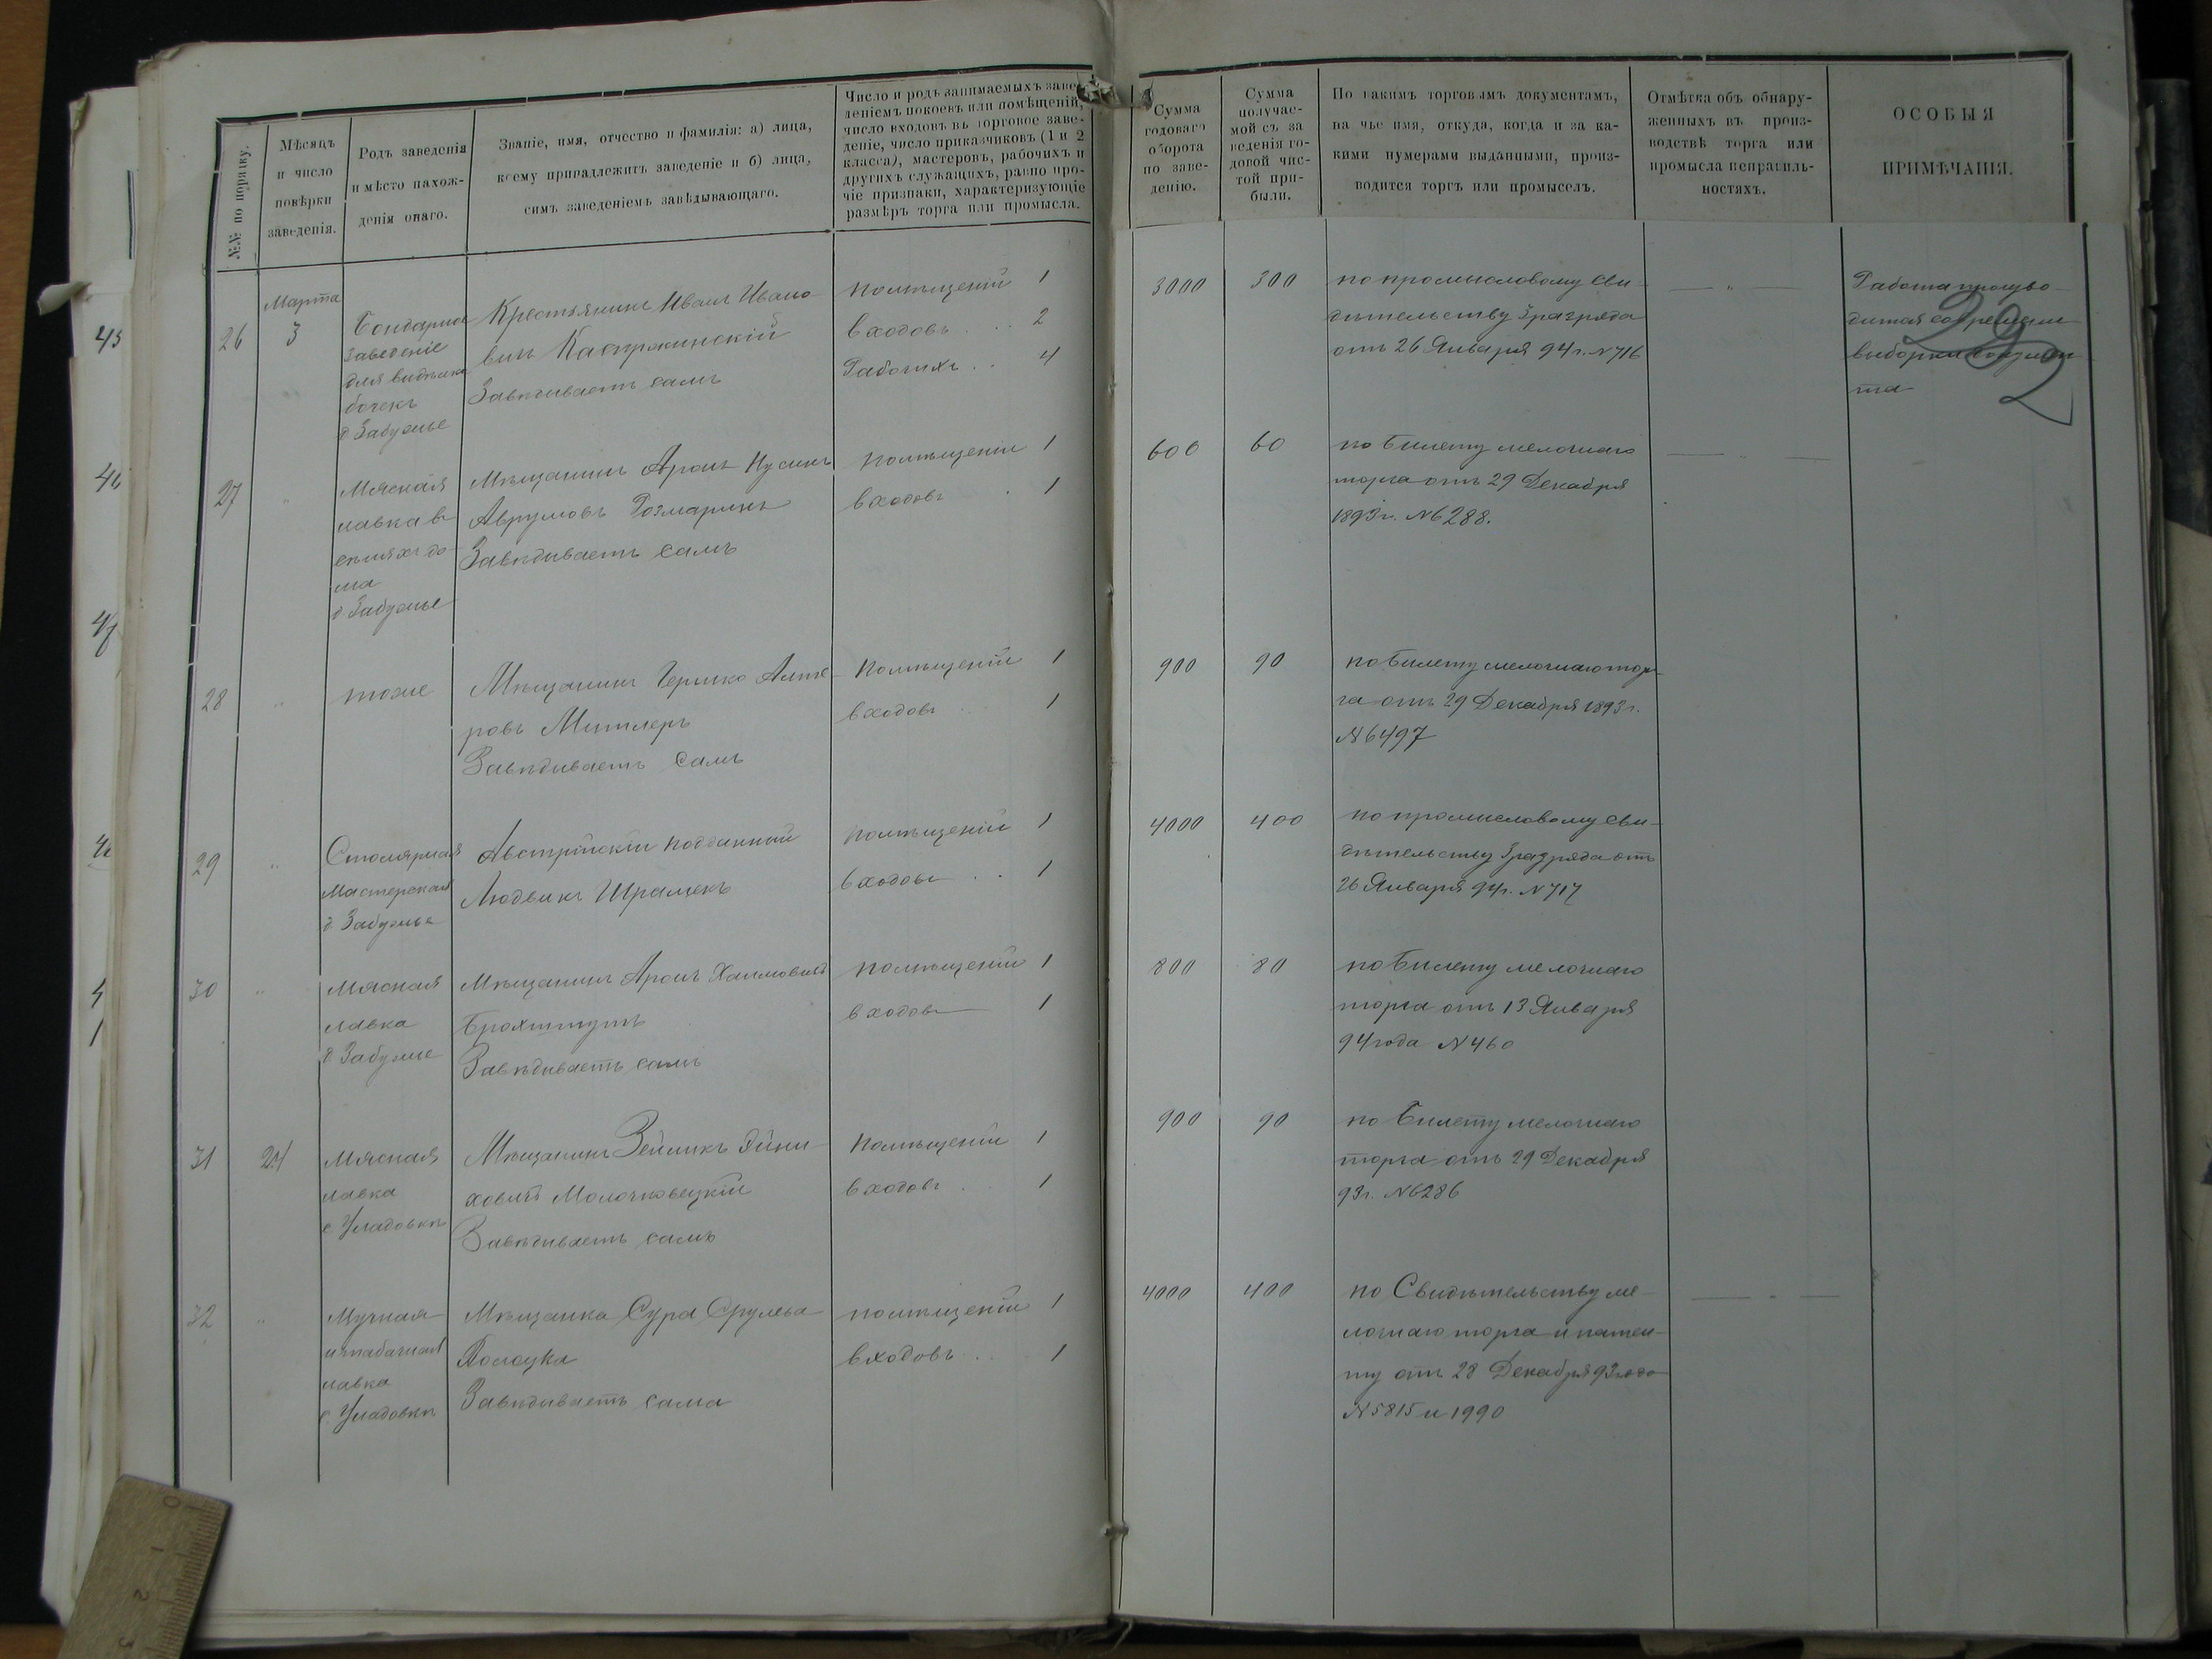 №№ по порядку.
Мѣсяцъ
и число
повѣрки
заведенія.
Родъ заведенія
и мѣсто нахож-
денія онаго.
Званіе, имя, отчество и фамилія: а) лица,
коему принадлежитъ заведеніе и б) лица,
симъ заведеніемъ завѣдывающаго.
Число и родъ занимаемыхъ заве-
деніемъ покоевъ или помѣщеній,
число входовъ въ торговое заве-
деніе, число приказчиковъ (1 и 2
класса), мастеровъ, рабочихъ и
другихъ служащихъ, равно про-
чіе признаки, характеризующіе
размѣръ торга или промысла.
Сумма
годоваго
оборота
по заве-
денію.
Сумма
получае-
мой съ за
веденія го-
довой чис-
той при-
были.
По какимъ торговымъ документамъ,
на чье имя, откуда, когда и за ка-
кими нумерами выданными, произ-
водится торгъ или промыселъ.
Отмѣтка объ обнару-
женныхъ въ произ-
водствѣ торга или
промысла неправиль-
ностяхъ.
ОСОБЫЯ
ПРИМѢЧАНІЯ.
26
Марта
3
Бондарное
заведеніе
для
бочекъ
д Забужье
Крестьянинъ Иванъ Ивано-
вичъ
Завѣдываетъ самъ
Помѣщеній 1
входовъ 2
Рабочихъ 4
3000
300
по промысловому сви-
дѣтельству 3 разряда
отъ 26 Января 94 г. N 716
— " —
Работа произво-
дится
выборки докумен
та
29
2
27
"
Мясная
лавка въ
сѣняхъ до-
ма
д Забужье
Мѣщанинъ Аронъ Нусинъ
Аврумовъ Розмаринъ
Завѣдываетъ самъ
Помѣщеній 1
входовъ 1
600
60
по Билету мелочнаго
торга отъ 29 Декабря
1893 г. N 6288.
— " —
28
"
тоже
Мѣщанинъ Гершко Алте-
ровъ Митлеръ
Завѣдываетъ самъ
Помѣщеній 1
входовъ 1
900
90
по Билету мелочнаго тор
га отъ 29 Декабря 1893 г.
N 6497
29
"
Столярная
мастерская
д Забужье
Австрійскій подданный
Людвикъ Шрамекъ
помѣщеній 1
входовъ 1
4000
400
по промысловому сви-
дѣтельству 3 разряда отъ
26 Января 94 г. N 717
30
"
Мясная
лавка
д Забужье
Мѣщанинъ Аронъ Хаимовичъ
Завѣдываетъ самъ
помѣщеній 1
входовъ 1
800
80
по Билету мелочнаго
торга отъ 13 Января
94 года N 460
31
24
Мясная
лавка
с Уладовки
Мѣщанинъ Зейликъ Эйни-
ховичъ Молочковецкій
Завѣдываетъ самъ
помѣщеній 1
входовъ 1
900
90
по Билету мелочнаго
торга отъ 29 Декабря
93 г. N 6286
32
"
Мучная
и табачная
лавка
с Уладовки
Мѣщанка Сура Срулева
Полоцка
Завѣдываетъ сама
помѣщеній 1
входовъ 1
4000
400
по Свидѣтельству ме-
лочнаго торга и патен-
ту отъ 28 Декабря 93 года
N 5815 и 1990
— " —